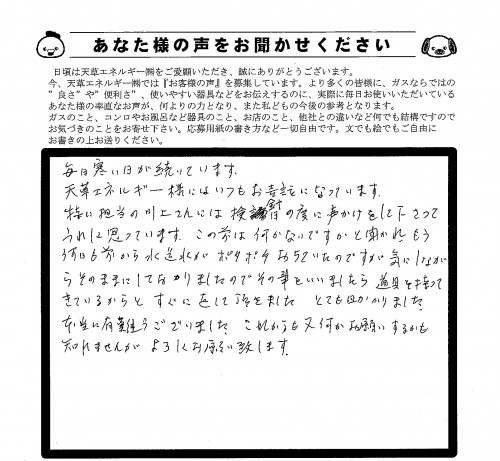 あなた様の声をお聞かせください
日頃は天草エネルギー㈱をご愛顧いただき、誠にありがとうございます。
今、天草エネルギー㈱では『お客様の声』を募集しています。より多くの皆様に、ガスならではの
"良さ"や"便利さ"、使いやすい器具などをお伝えするのに、実際に毎日お使いいただいている
あなた様の率直なお声が、何よりの力となり、また私どもの今後の参考となります。
ガスのこと、コンロやお風呂など器具のこと、お店のこと、他社との違いなど何でも結構ですので
お気づきのことをお寄せ下さい。応募用紙の書き方など一切自由です。文でも絵でもご自由に
お書きの上お送りください。
毎日寒い日が続いています。
天草エネルギー様にはいつもお世話になっています。
特に担当の川上さんには検針の度に声かけをして下さって
うれしく思っています。この前は何かないですかと聞かれ、もう
何日も前から水道水がポタポタおちていたのですが気にしなが
らそのままにしておりましたのでその事をいいましたら道具を持って
きているからとすぐに直して頂きました とても助かりました。
本当に有難うございました。これからも又何かお願いするかも
知れませんがよろしくお願い致します。